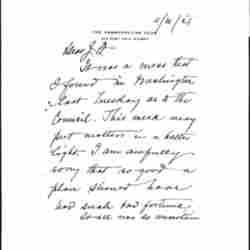 THE COSMOPOLITAN CLUB
Dear J. A-
It was a mess that
I found in Washington
last Tuesday as to the
Council. This week may
put matters in a better
light. I am awfully
sorry that so good a
plan should have
had such bad fortune.